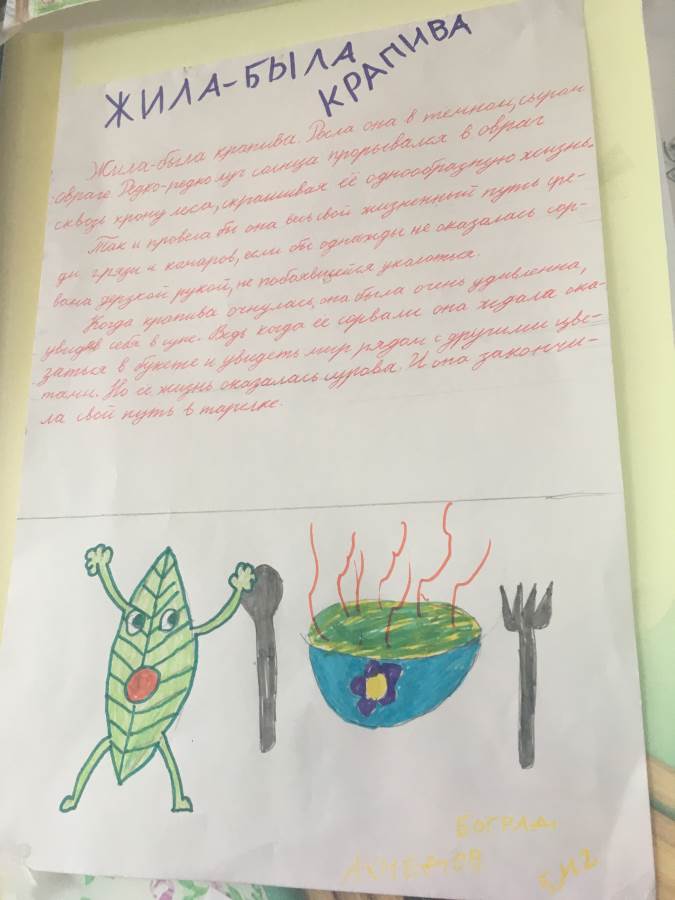 ЖИЛА-БЫЛА
КРАПИВА
Жила-была крапива. Росла она в темном, сыром
овраге. Редко-редко луч солнца прорывался в овраг
сквозь крону леса, скрашивая её однообразную жизнь.
Так и провела бы она весь свой жизненный путь сре-
ди грязи и комаров, если бы однажды не оказалась сор-
вана дерзкой рукой, не побоявшейся уколоться.
Когда крапива очнулась, она была очень удивленна,
увидев себя в супе. Ведь когда её сорвали она ждала ока-
заться в букете и увидеть мир рядом с другими цве-
тами. Но её жизнь оказалась сурова. И она закончи-
ла свой путь в тарелке.
АХМЕТОВ